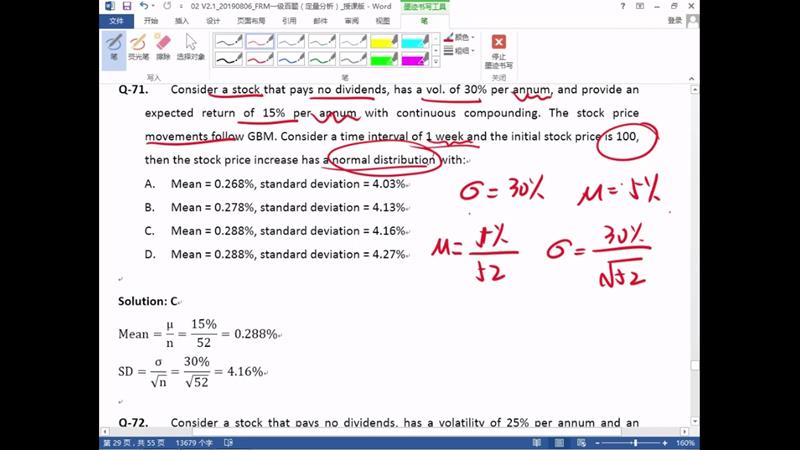 02 V2.1_20190806_FRM一级百题（定量分析）_授课版 - Word
墨迹书写工具
文件 开始 插入 设计 页面布局 引用 邮件 审阅 视图 笔
登录
笔 荧光笔 橡皮擦 选择对象
颜色
粗细
停止
墨迹书写
写入 笔 关闭
Q-71. Consider a stock that pays no dividends, has a vol. of 30% per annum, and provide an
expected return of 15% per annum with continuous compounding. The stock price
movements follow GBM. Consider a time interval of 1 week and the initial stock price is 100,
then the stock price increase has a normal distribution with:
A. Mean = 0.268%, standard deviation = 4.03%
B. Mean = 0.278%, standard deviation = 4.13%
C. Mean = 0.288%, standard deviation = 4.16%
D. Mean = 0.288%, standard deviation = 4.27%
σ = 30% μ = 5%
μ = 5%/52 σ = 30%/√52
Solution: C
Mean = μ/n = 15%/52 = 0.288%
SD = σ/√n = 30%/√52 = 4.16%
Q-72. Consider a stock that pays no dividends, has a volatility of 25% per annum and an
第 29 页，共 55 页 13679 个字 160%